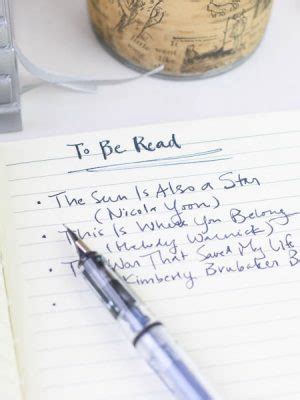 To Be Read
• The Sun Is Also a Star
(Nicola Yoon)
• This Is Where You Belong
(Melody Warnick)
• The War That Saved My Life
Kimberly Brubaker B
•